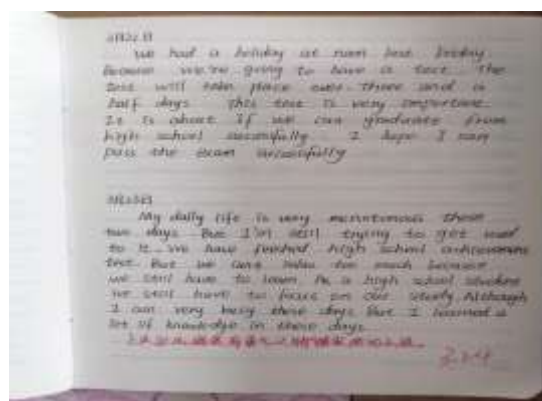 We had a holiday at noon last Friday.
Because we're going to have a test. The
test will take place over three and a
half days. This test is very important.
It is about if we can graduate from
high school successfully. I hope I can
pass the exam successfully
My daily life is very monotonous these
two days. But I'm still trying to get used
to it. We have finished high school achievement
test. But we can't relax too much because
we still have to learn. As a high school student
we still have to focus on our study. Although
I am very busy these days. But I learned a
lot of knowledge in these days.